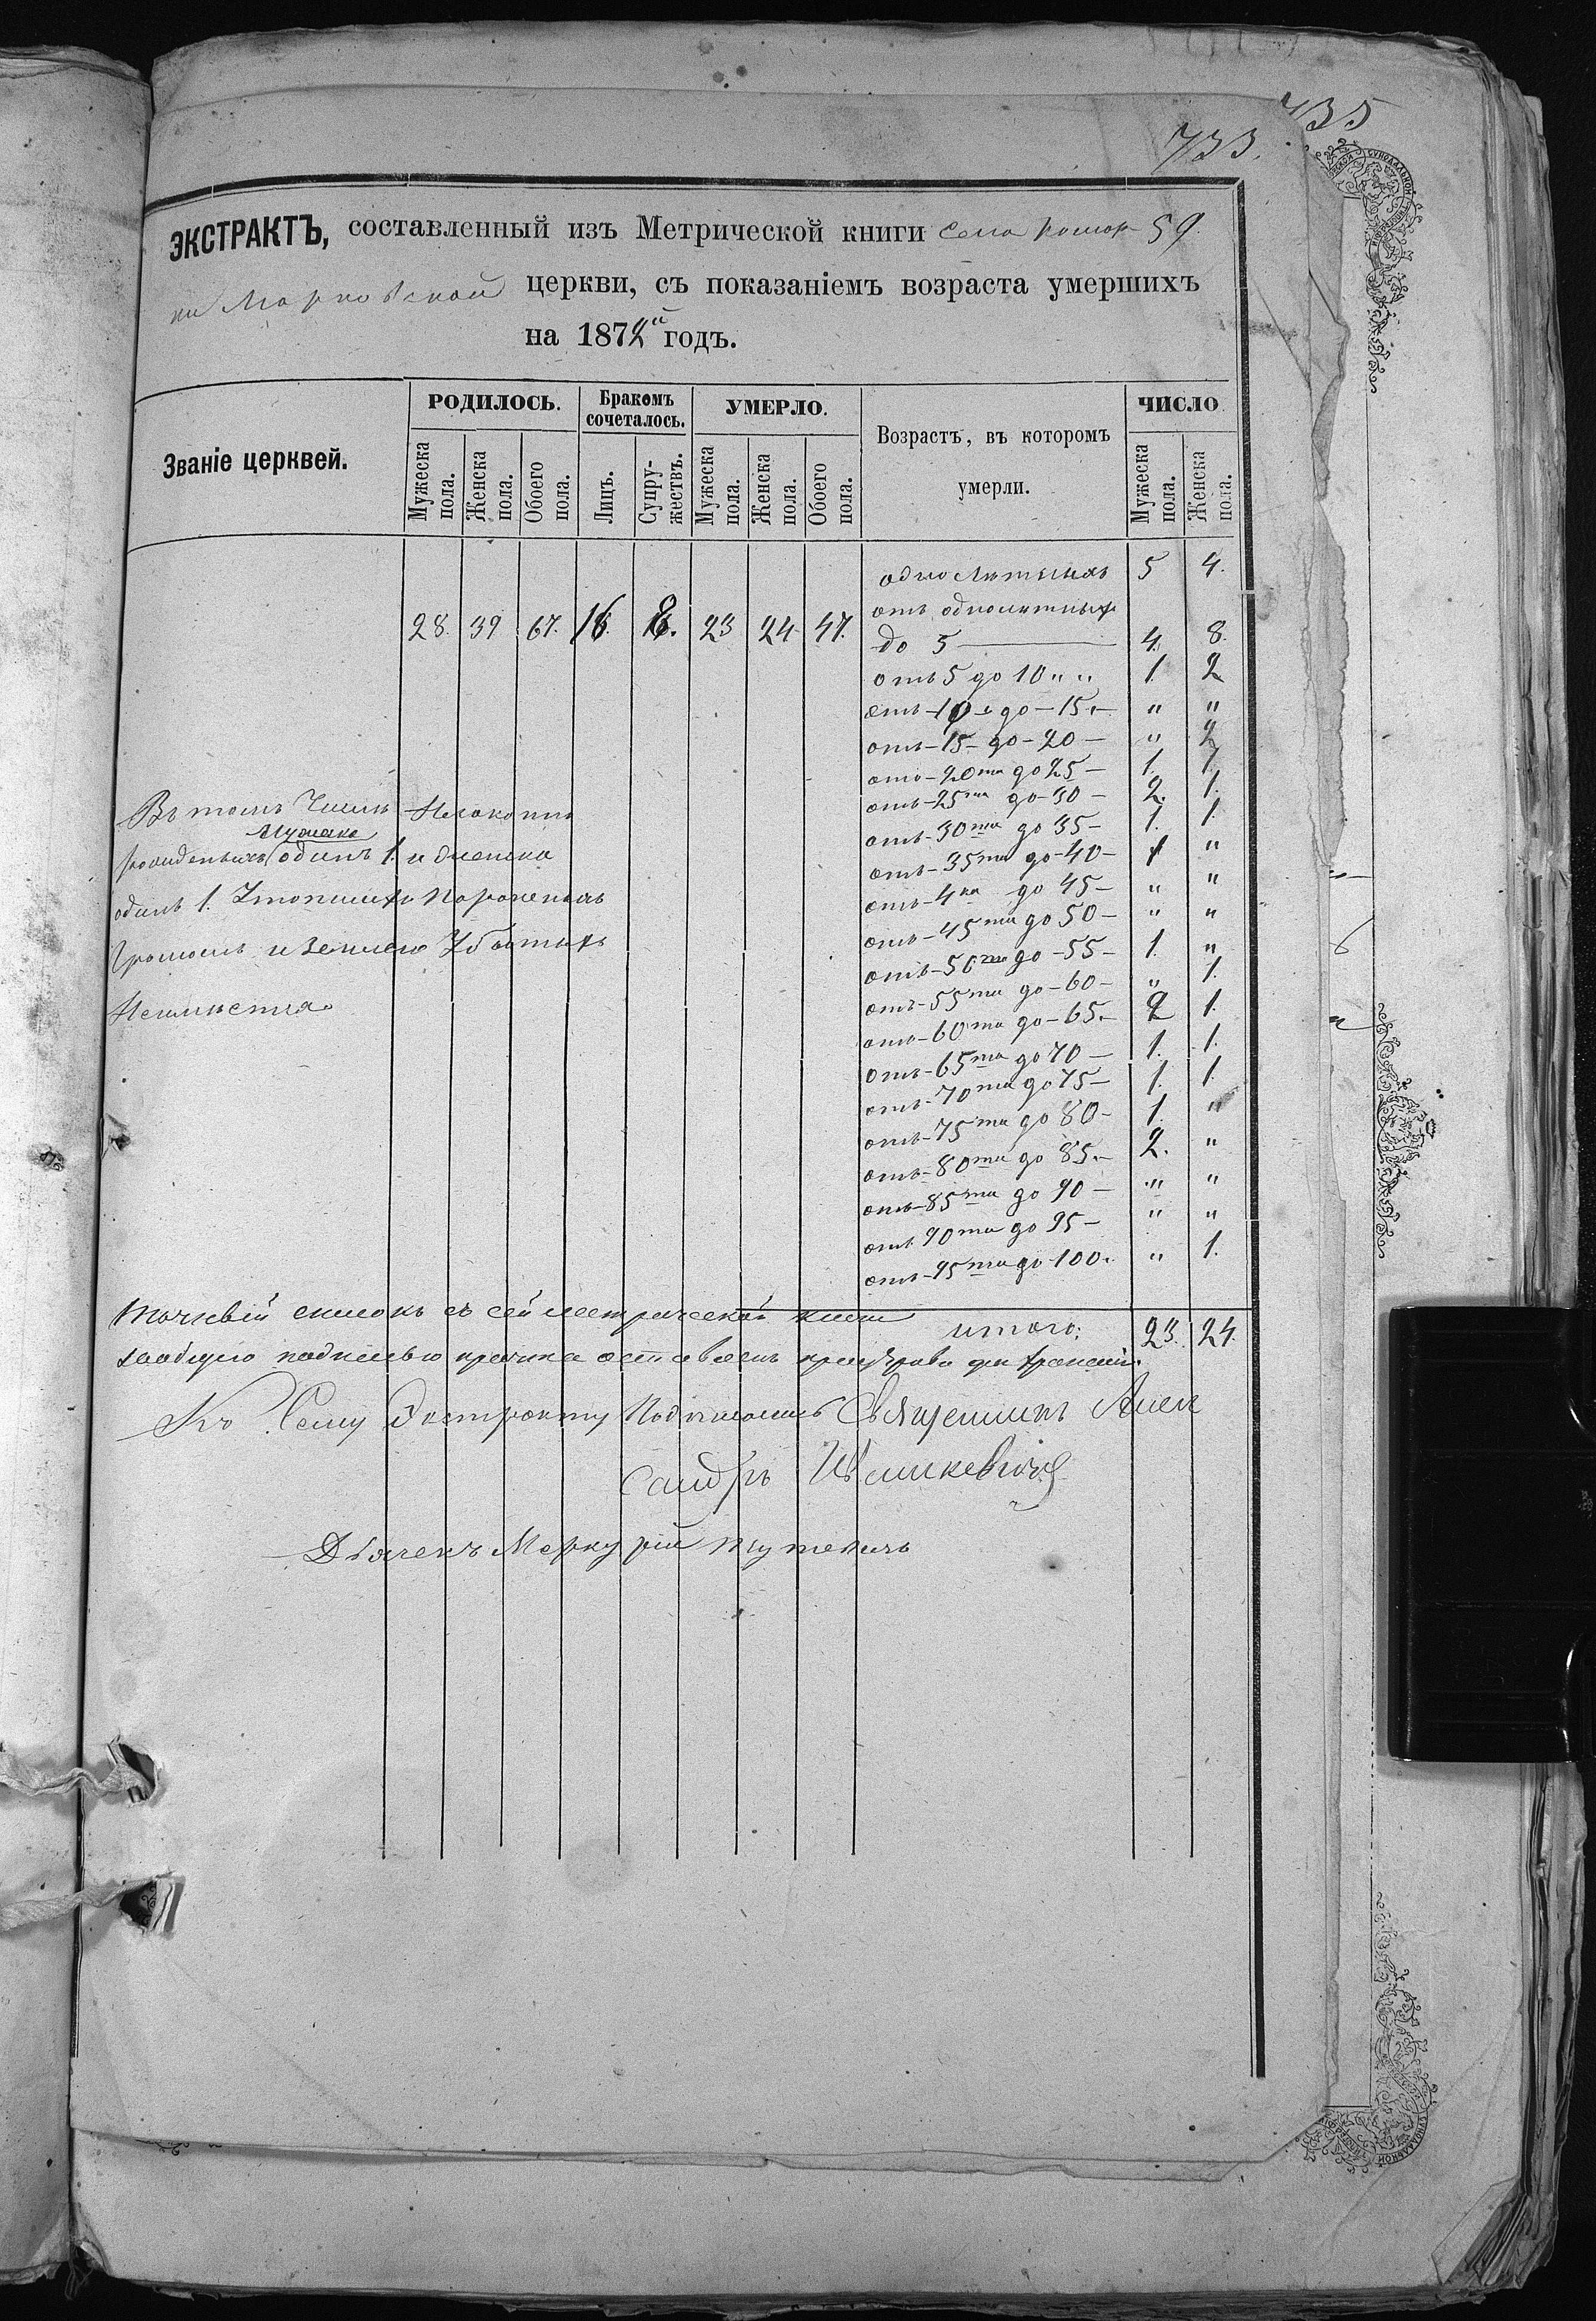 735
733.
ЭКСТРАКТЪ, составленный изъ Метрической книги села 59
церкви, съ показаніемъ возраста умершихъ
на 1872й годъ.
Званіе церквей.
РОДИЛОСЬ.
Мужеска пола.
Женска пола.
Обоего пола.
Бракомъ сочеталось.
Лицъ.
Супружествъ.
УМЕРЛО.
Мужеска пола.
Женска пола.
Обоего пола.
Возрастъ, въ которомъ умерли.
ЧИСЛО
Мужеска пола.
Женска пола.
28. 39 67. 16. 8. 23 24 47.
однолѣтныхъ 5 4.
отъ однолѣтныхъ
до 5 — 4. 8.
отъ 5 до 10 " " 1. 2
отъ - 10 - до - 15 - " "
отъ - 15 - до - 20 - " 2
отъ - 20ти до 25 - 1. 1.
отъ - 25ти до - 30 - 2. 1.
отъ - 30ти до 35 - 1. 1.
отъ - 35ти до - 40 - 1 "
отъ - 4ка до 45 - " "
отъ - 45ти до 50 - " "
отъ - 50ти до - 55 - 1. "
отъ - 55ти до - 60 - " 1.
отъ - 60ти до - 65 - 2 1.
отъ - 65ти до 70 - 1. 1.
отъ - 70ти до 75 - 1. 1.
отъ - 75ти до 80 - 1. "
отъ - 80ти до 85 - 2. "
отъ - 85ти до 90 - " "
отъ 90ти до 95 - " "
отъ - 95ти до 100. " 1.
итого: 23. 24.
Въ томъ числѣ незаконно
мужеска
рожденныхъ одинъ 1. и женска
одинъ 1. Утопшихъ пораженныхъ
громомъ и землею убитыхъ
неимѣется.
точный списокъ съ сей метрической книги
подписью причта оставленъ при церкви
Къ сему Экстракту подписались Священникъ Алек
сандръ
Дьячекъ Меркурій